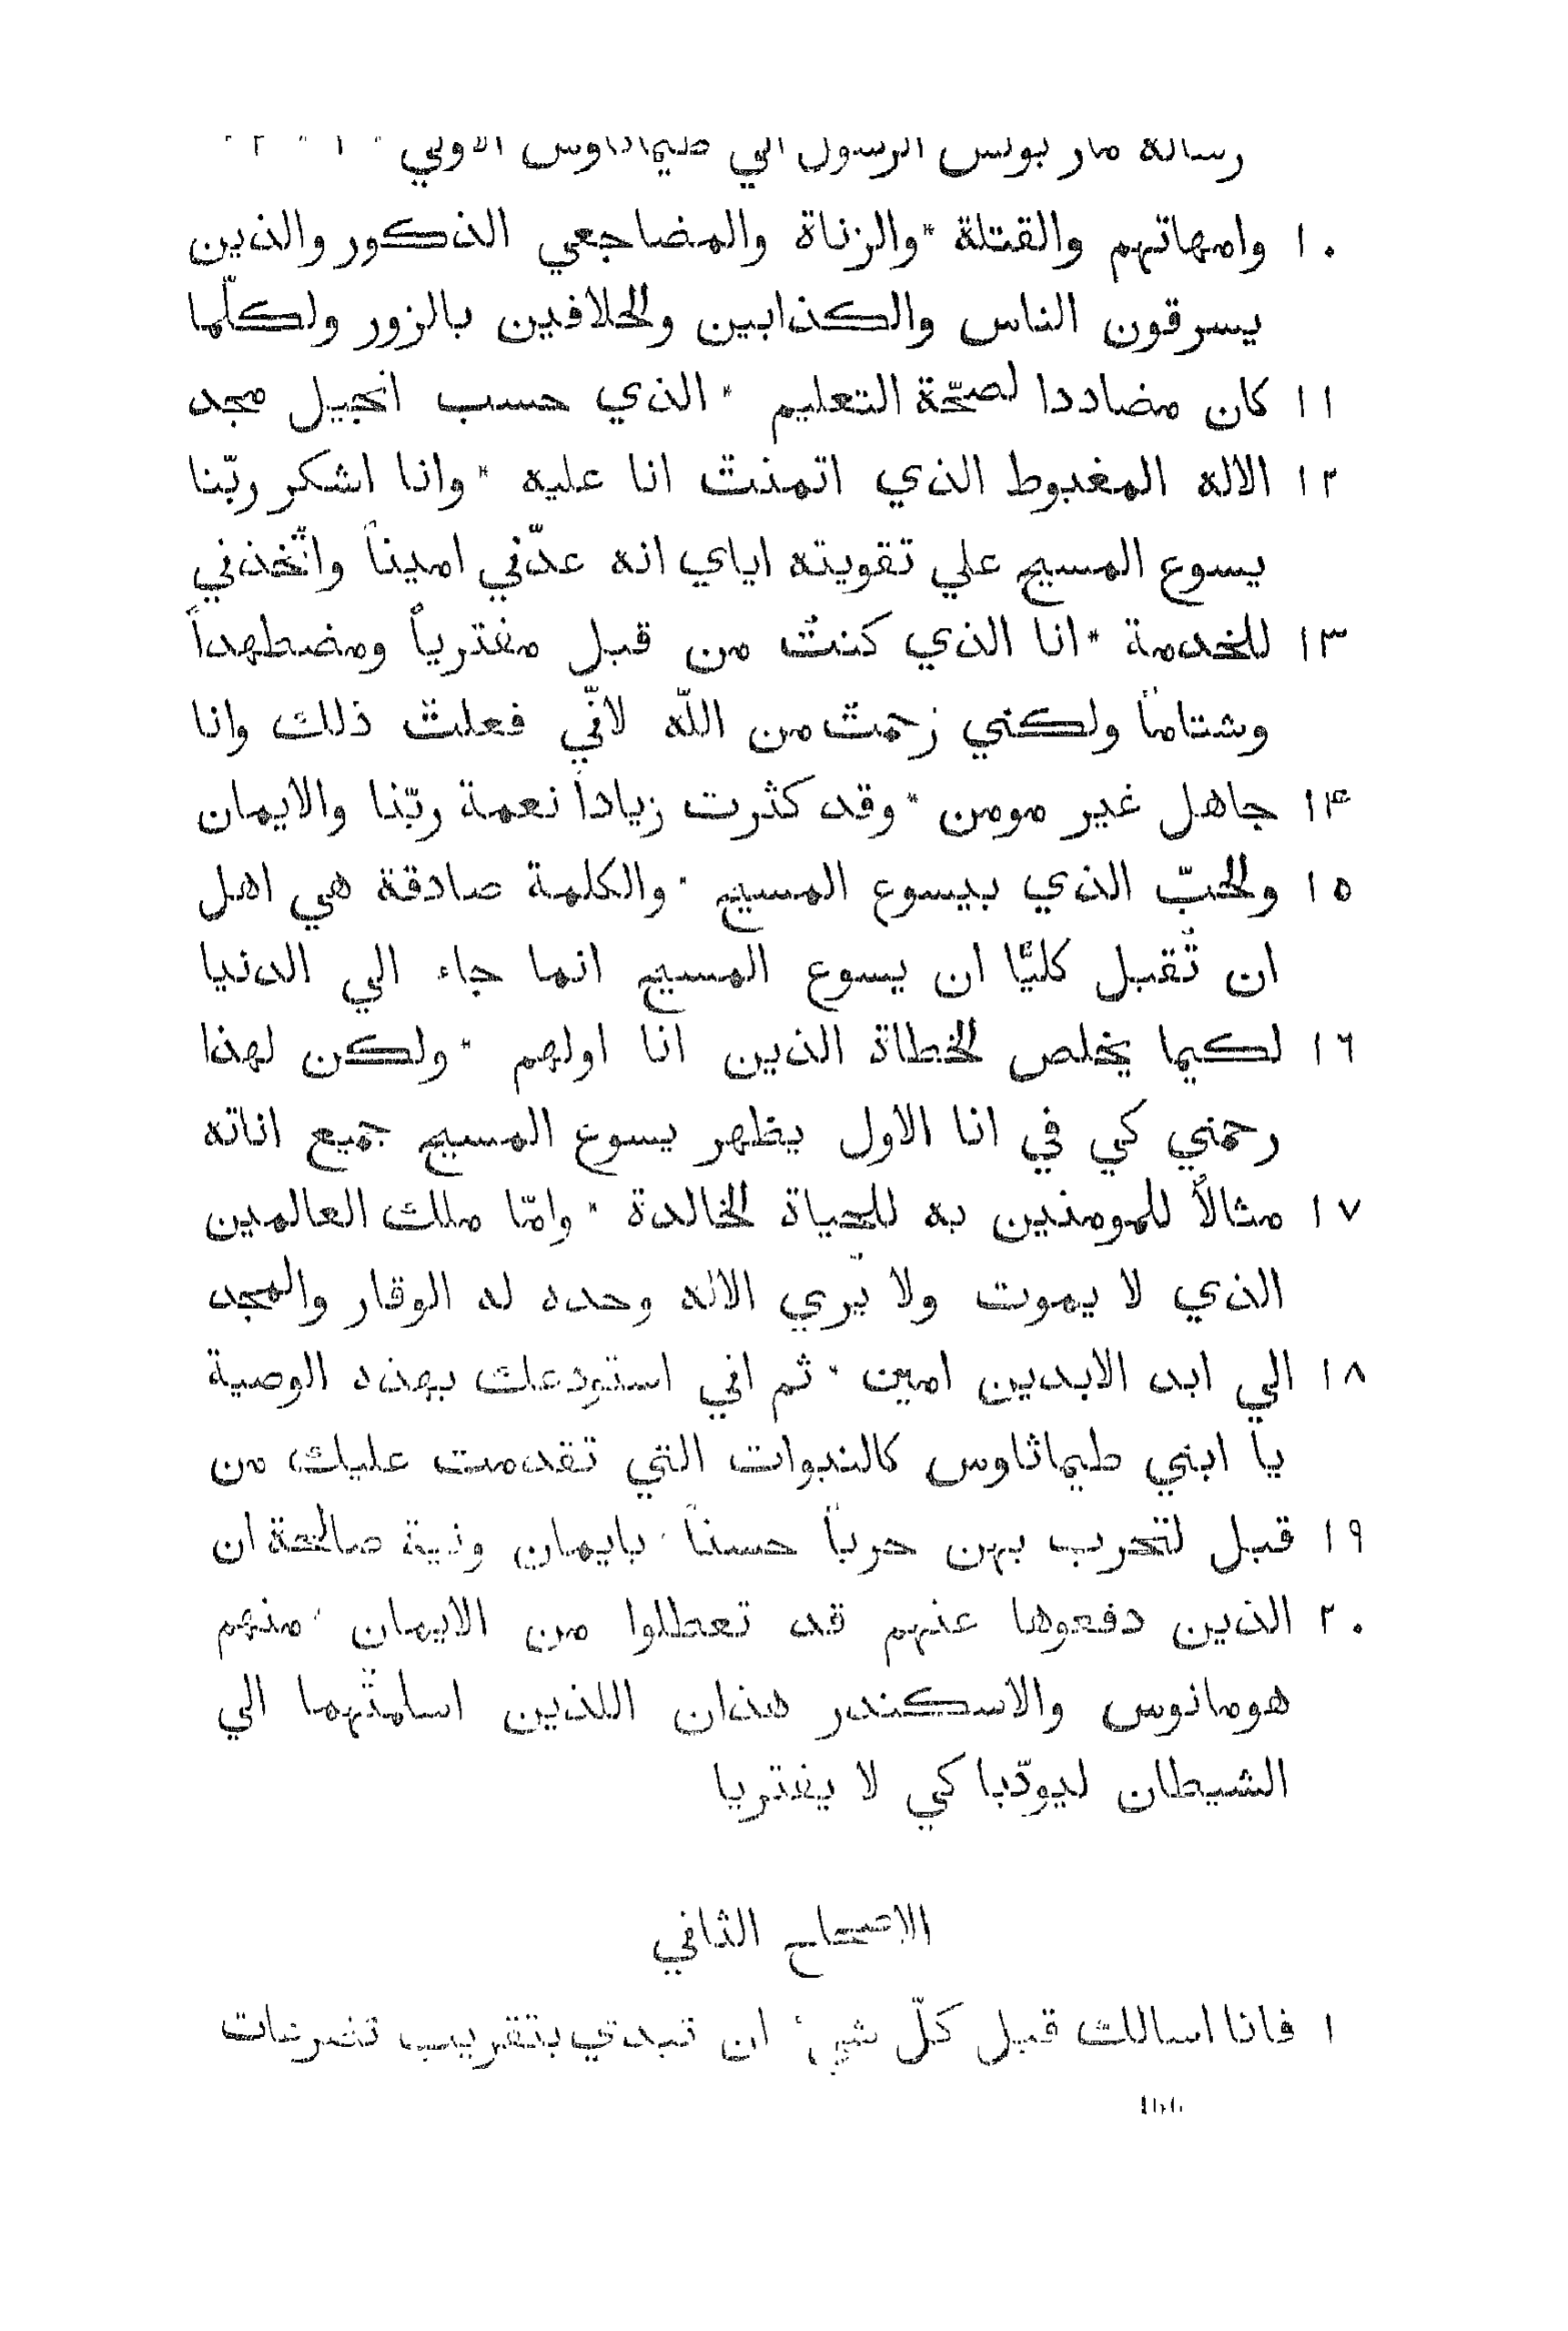 رسالة مار بولس الرسول الي طيماثاوس الاولي * ١ * ٢ *
١٠ وامهاتهم والقتلة * والزناة والمضاجعي الذكور والذين
يسرقون الناس والكذابين والحلافين بالزور ولكلّما
١١ كان مضاددا لصحّة التعليم * الذي حسب انجيل مجد
١٢ الاله المغبوط الذي اتمنت انا عليه * وانا اشكر ربّنا
يسوع المسيح علي تقويته اياي انه عدّني امينًا واتّخذني
١٣ للخدمة * انا الذي كنتُ من قبل مفتريًا ومضطهدًا
وشتامًا ولكني رحمت من اللّه لانّي فعلت ذلك وانا
١٤ جاهل غير مومن * وقد كثرت زيادًا نعمة ربّنا والايمان
١٥ والحبّ الذي بيسوع المسيح * والكلمة صادقة هي اهل
ان تُقبل كليًّا ان يسوع المسيح انما جاء الي الدنيا
١٦ لكيما يخلص الخطاة الذين انا اولهم * ولكن لهذا
رحمني كي في انا الاول يظهر يسوع المسيح جميع اناته
١٧ مثالًا للمومنين به للحياة الخالدة * وامّا ملك العالمين
الذي لا يموت ولا يُري الاله وحده له الوقار والمجد
١٨ الي ابد الابدين امين * ثم اني استودعك بهذه الوصية
يا ابني طيماثاوس كالنبوات التي تقدمت عليك من
١٩ قبل لتحرب بهن حربًا حسنًا * بايمان ونية صالحة ان
٢٠ الذين دفعوها عنهم قد تعطلوا من الايمان * منهم
هومانوس والاسكندر هذان اللذين اسلمتُهما الي
الشيطان ليودّبا كي لا يفتريا
الاصحاح الثاني
١ فانا اسالك قبل كلّ شيء ان تبدي بتقريب تضرعات